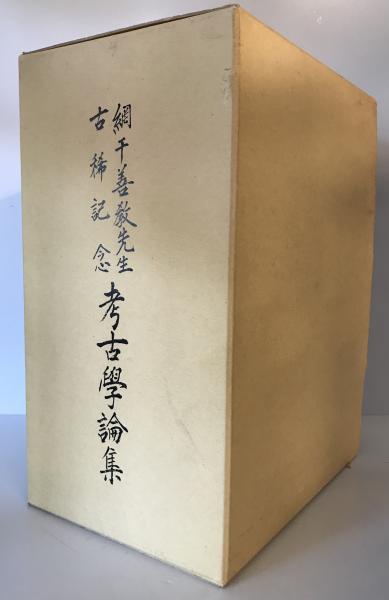 網干善教先生
古稀記念
考古學論集